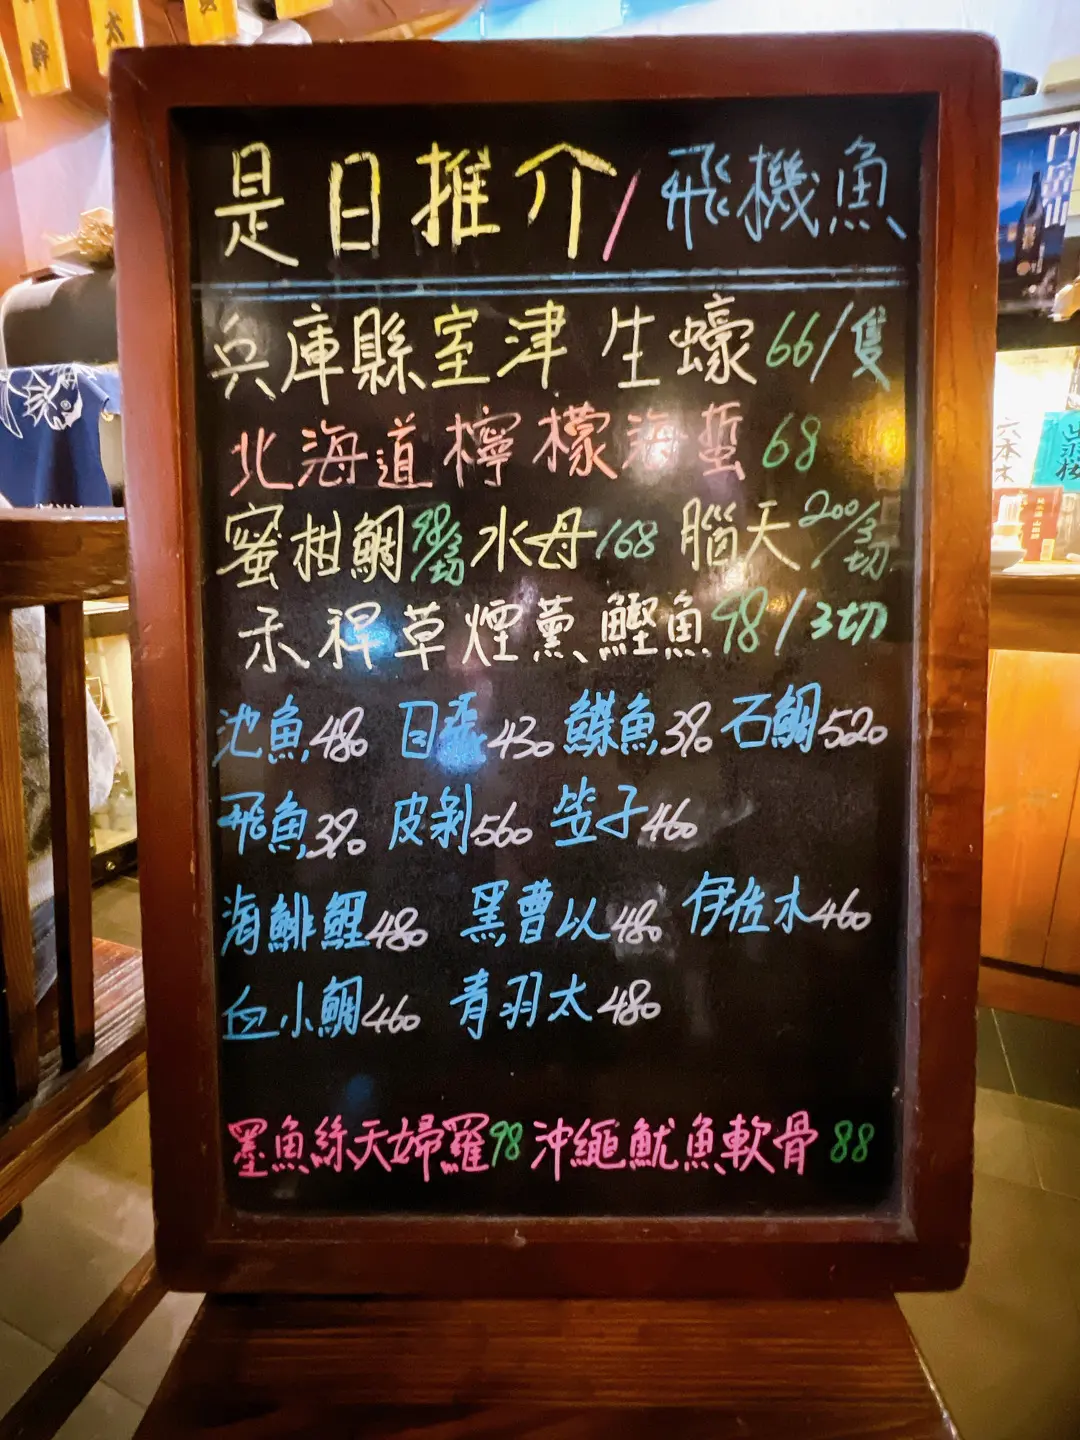 是日推介/飛機魚
兵庫縣室津 生蠔66/隻
北海道檸檬海蜇68
蜜柑鯛98/3切 水母168 腦天200/3切
禾稈草煙薰鰹魚98/3切
池魚480 目孟430 鰈魚390 石鯛520
飛魚390 皮剝560 笠子460
海鯡鯉480 黑曹以480 伊佐木460
血小鯛460 青羽太480
墨魚絲天婦羅98 沖繩魷魚軟骨88
白岳山
六本木
出羽桜
太